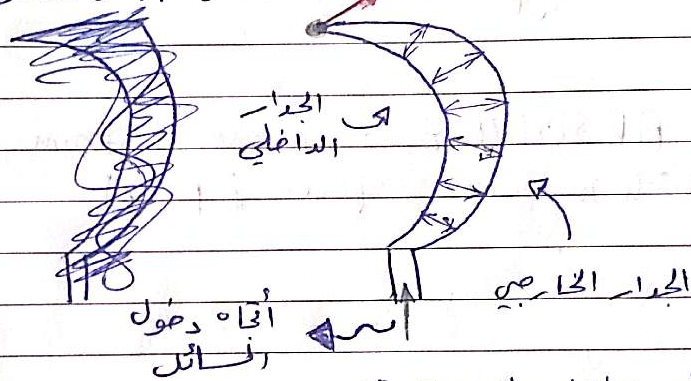 الجدار
الداخلي
الجدار الخارجي
أتجاه دخول
السائل